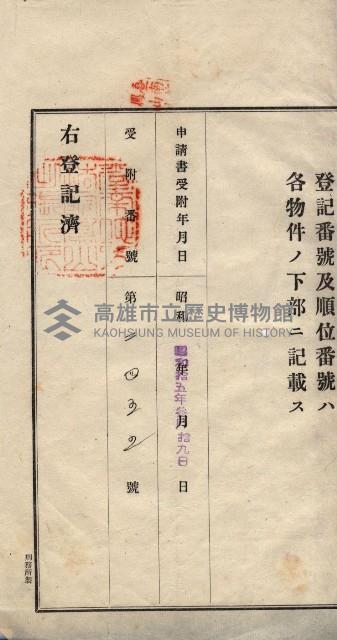 登記番號及順位番號ハ
各物件ノ下部ニ記載ス
申請書受附年月日
昭和 年 月 日
昭和拾五年 月拾九日
受附番號
第二四五五號
右登記濟
刑務所製
高雄市立歷史博物館
KAOHSIUNG MUSEUM OF HISTORY